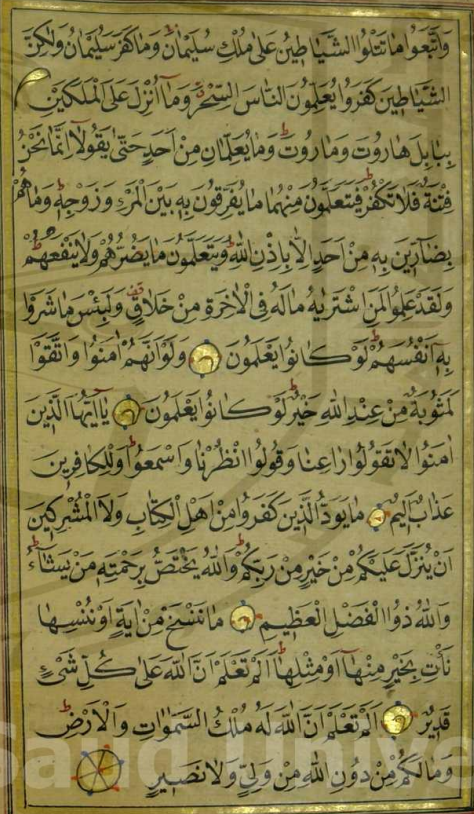 وَاتَّبَعُوا مَا تَتْلُوا الشَّيَاطِينُ عَلٰى مُلْكِ سُلَيْمَانَ وَمَا كَفَرَ سُلَيْمَانُ وَلٰكِنَّ
الشَّيَاطِينَ كَفَرُوا يُعَلِّمُونَ النَّاسَ السِّحْرَ وَمَا اُنْزِلَ عَلَى الْمَلَكَيْنِ
بِبَابِلَ هَارُوتَ وَمَارُوتَ وَمَا يُعَلِّمَانِ مِنْ اَحَدٍ حَتّٰى يَقُولَا اِنَّمَا نَحْنُ
فِتْنَةٌ فَلَا تَكْفُرْ فَيَتَعَلَّمُونَ مِنْهُمَا مَا يُفَرِّقُونَ بِهِ بَيْنَ الْمَرْءِ وَزَوْجِهِ وَمَا هُمْ
بِضَارِّينَ بِهِ مِنْ اَحَدٍ اِلَّا بِاِذْنِ اللّٰهِ وَيَتَعَلَّمُونَ مَا يَضُرُّهُمْ وَلَا يَنْفَعُهُمْ
وَلَقَدْ عَلِمُوا لَمَنِ اشْتَرٰيهُ مَا لَهُ فِى الْاٰخِرَةِ مِنْ خَلَاقٍ وَلَبِئْسَ مَا شَرَوْا
بِهِ اَنْفُسَهُمْ لَوْ كَانُوا يَعْلَمُونَ وَلَوْ اَنَّهُمْ اٰمَنُوا وَاتَّقَوْا
لَمَثُوبَةٌ مِنْ عِنْدِ اللّٰهِ خَيْرٌ لَوْ كَانُوا يَعْلَمُونَ يَا اَيُّهَا الَّذِينَ
اٰمَنُوا لَا تَقُولُوا رَاعِنَا وَقُولُوا انْظُرْنَا وَاسْمَعُوا وَلِلْكَافِرِينَ
عَذَابٌ اَلِيمٌ مَا يَوَدُّ الَّذِينَ كَفَرُوا مِنْ اَهْلِ الْكِتَابِ وَلَا الْمُشْرِكِينَ
اَنْ يُنَزَّلَ عَلَيْكُمْ مِنْ خَيْرٍ مِنْ رَبِّكُمْ وَاللّٰهُ يَخْتَصُّ بِرَحْمَتِهِ مَنْ يَشَاءُ
وَاللّٰهُ ذُوا الْفَضْلِ الْعَظِيمِ مَا نَنْسَخْ مِنْ اٰيَةٍ اَوْ نُنْسِهَا
نَأْتِ بِخَيْرٍ مِنْهَا اَوْ مِثْلِهَا اَلَمْ تَعْلَمْ اَنَّ اللّٰهَ عَلٰى كُلِّ شَىْءٍ
قَدِيرٌ اَلَمْ تَعْلَمْ اَنَّ اللّٰهَ لَهُ مُلْكُ السَّمٰوَاتِ وَالْاَرْضِ
وَمَا لَكُمْ مِنْ دُونِ اللّٰهِ مِنْ وَلِىٍّ وَلَا نَصِيرٍ